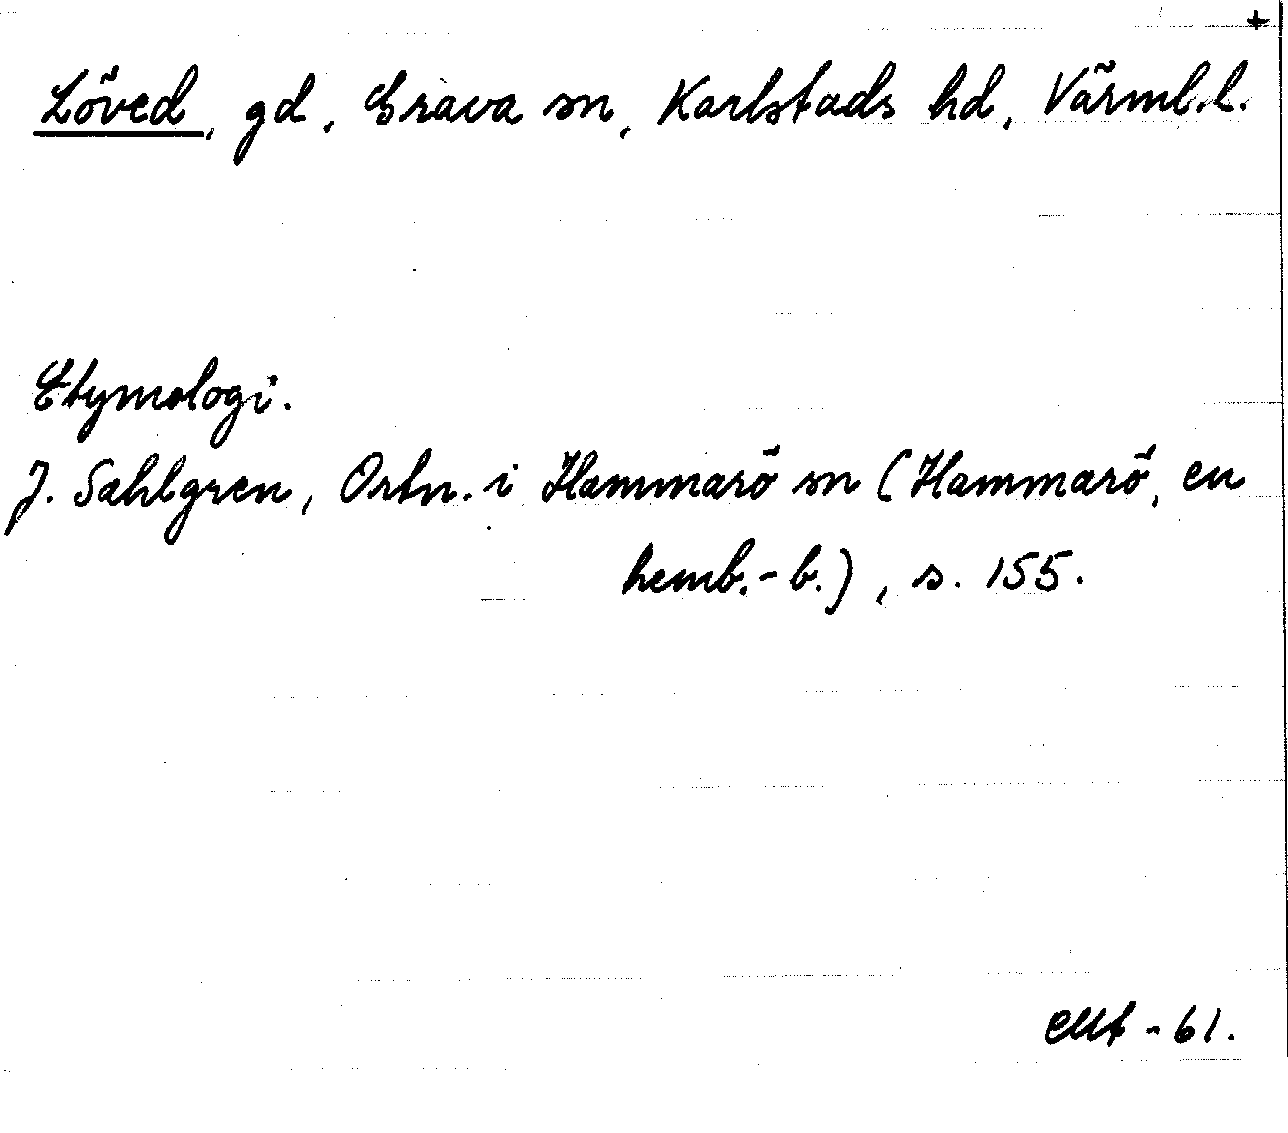 +
Löved, gd, Grava sn, Karlstads hd, Värml.l.
Etymologi.
J. Sahlgren, Ortn. i Hammarö sn (Hammarö, en
hemb.-b.), s. 155.
-61.